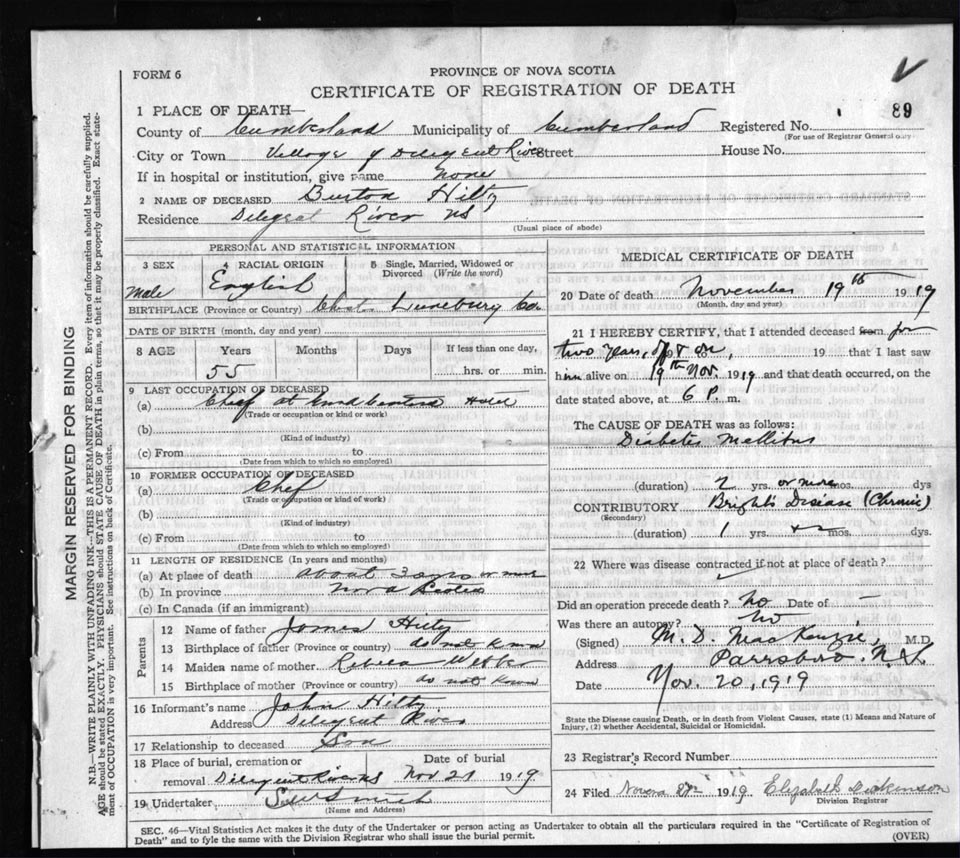 FORM 6
PROVINCE OF NOVA SCOTIA
CERTIFICATE OF REGISTRATION OF DEATH
89
1 PLACE OF DEATH—
County of Cumberland Municipality of Cumberland Registered No.
(For use of Registrar General only
City or Town Village of Diligent River Street House No.
If in hospital or institution, give name none
2 NAME OF DECEASED Burton Hiltz
Residence Diligent River NS
(Usual place of abode)
PERSONAL AND STATISTICAL INFORMATION
3 SEX 4 RACIAL ORIGIN 5 Single, Married, Widowed or Divorced (Write the word)
Male English
BIRTHPLACE (Province or Country) Lunenburg Co.
DATE OF BIRTH (month, day and year)
8 AGE Years Months Days If less than one day,
55 hrs. or min.
9 LAST OCCUPATION OF DECEASED
(a) Chef at Hotel
(Trade or occupation or kind or work)
(b)
(Kind of industry)
(c) From to
(Date from which to which so employed)
10 FORMER OCCUPATION OF DECEASED
(a) Chef
(Trade or occupation or kind or work)
(b)
(Kind of industry)
(c) From to
(Date from which to which so employed)
11 LENGTH OF RESIDENCE (In years and months)
(a) At place of death about 3 yrs or more
(b) In province Nova Scotia
(c) In Canada (if an immigrant)
Parents
12 Name of father James Hiltz
13 Birthplace of father (Province or country) do not know
14 Maiden name of mother Rebecca Webber
15 Birthplace of mother (Province or country) do not know
16 Informant's name John Hiltz
Address Diligent River
17 Relationship to deceased Son
18 Place of burial, cremation or Date of burial
removal Diligent River NS Nov 21 1919
19 Undertaker S W Smith
(Name and Address)
MEDICAL CERTIFICATE OF DEATH
20 Date of death November 19th 1919
(Month, day and year)
21 I HEREBY CERTIFY, that I attended deceased from for
two years, off & on, 19 that I last saw
him alive on 19th Nov. 1919 and that death occurred, on the
date stated above, at 6 P. m.
The CAUSE OF DEATH was as follows:
Diabetes Mellitus
(duration) 2 yrs. or more mos. dys
CONTRIBUTORY Bright's Disease (Chronic)
(Secondary)
(duration) 1 yrs. mos. dys.
22 Where was disease contracted if not at place of death?
Did an operation precede death? No Date of —
Was there an autopsy? No
(Signed) M. D. MacKenzie, M.D.
Address Parrsboro. N.S.
Date Nov. 20, 1919
State the Disease causing Death, or in death from Violent Causes, state (1) Means and Nature of
Injury, (2) whether Accidental, Suicidal or Homicidal.
23 Registrar's Record Number
24 Filed 1919 Elizabeth Dickinson
Division Registrar
SEC. 46—Vital Statistics Act makes it the duty of the Undertaker or person acting as Undertaker to obtain all the particulars required in the "Certificate of Registration of
Death" and to fyle the same with the Division Registrar who shall issue the burial permit.
(OVER)
MARGIN RESERVED FOR BINDING
N.B.—WRITE PLAINLY WITH UNFADING INK—THIS IS A PERMANENT RECORD. Every item of information should be carefully supplied.
AGE should be stated EXACTLY. PHYSICIANS should STATE CAUSE OF DEATH in plain terms, so that it may be properly classified. Exact state-
ment of OCCUPATION is very important. See instructions on back of Certificate.